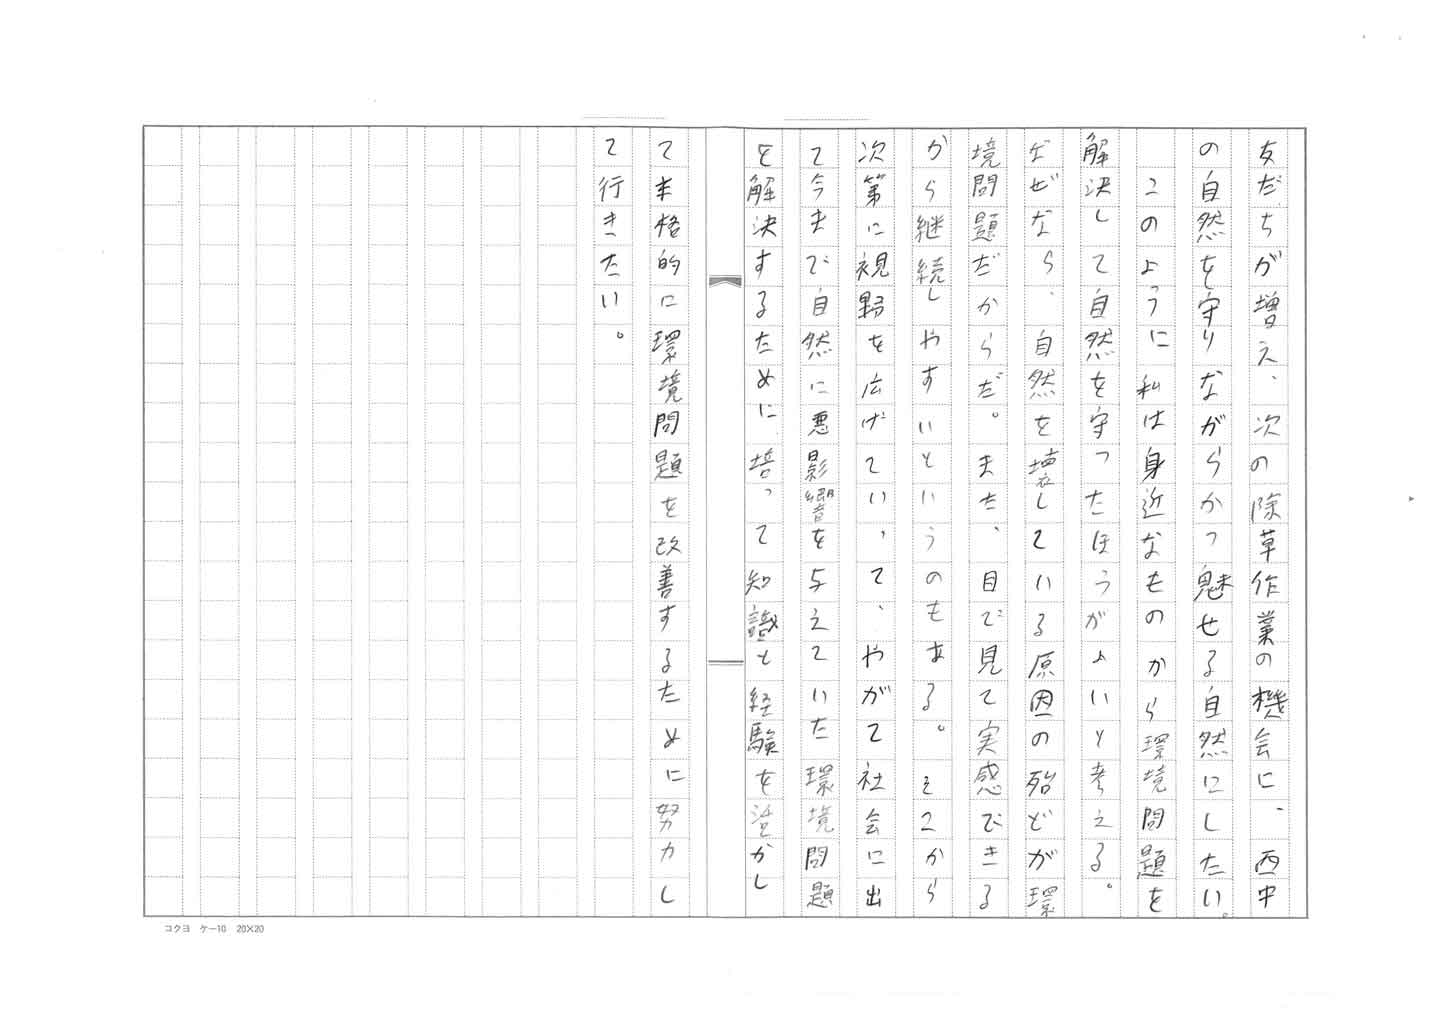 友だちが増え、次の除草作業の機会に、西中
の自然を守りながらかつ魅せる自然にしたい。
このように私は身近なものから環境問題を
解決して自然を守ったほうがよいと考える。
なぜなら、自然を壊している原因の殆どが環
境問題だからだ。また、目で見て実感できる
から継続しやすいというのもある。そこから
次第に視野を広げていって、やがて社会に出
て今まで自然に悪影響を与えていた環境問題
を解決するために培って知識と経験を活かし
て本格的に環境問題を改善するために努力し
て行きたい。
コクヨ ケー10 20×20